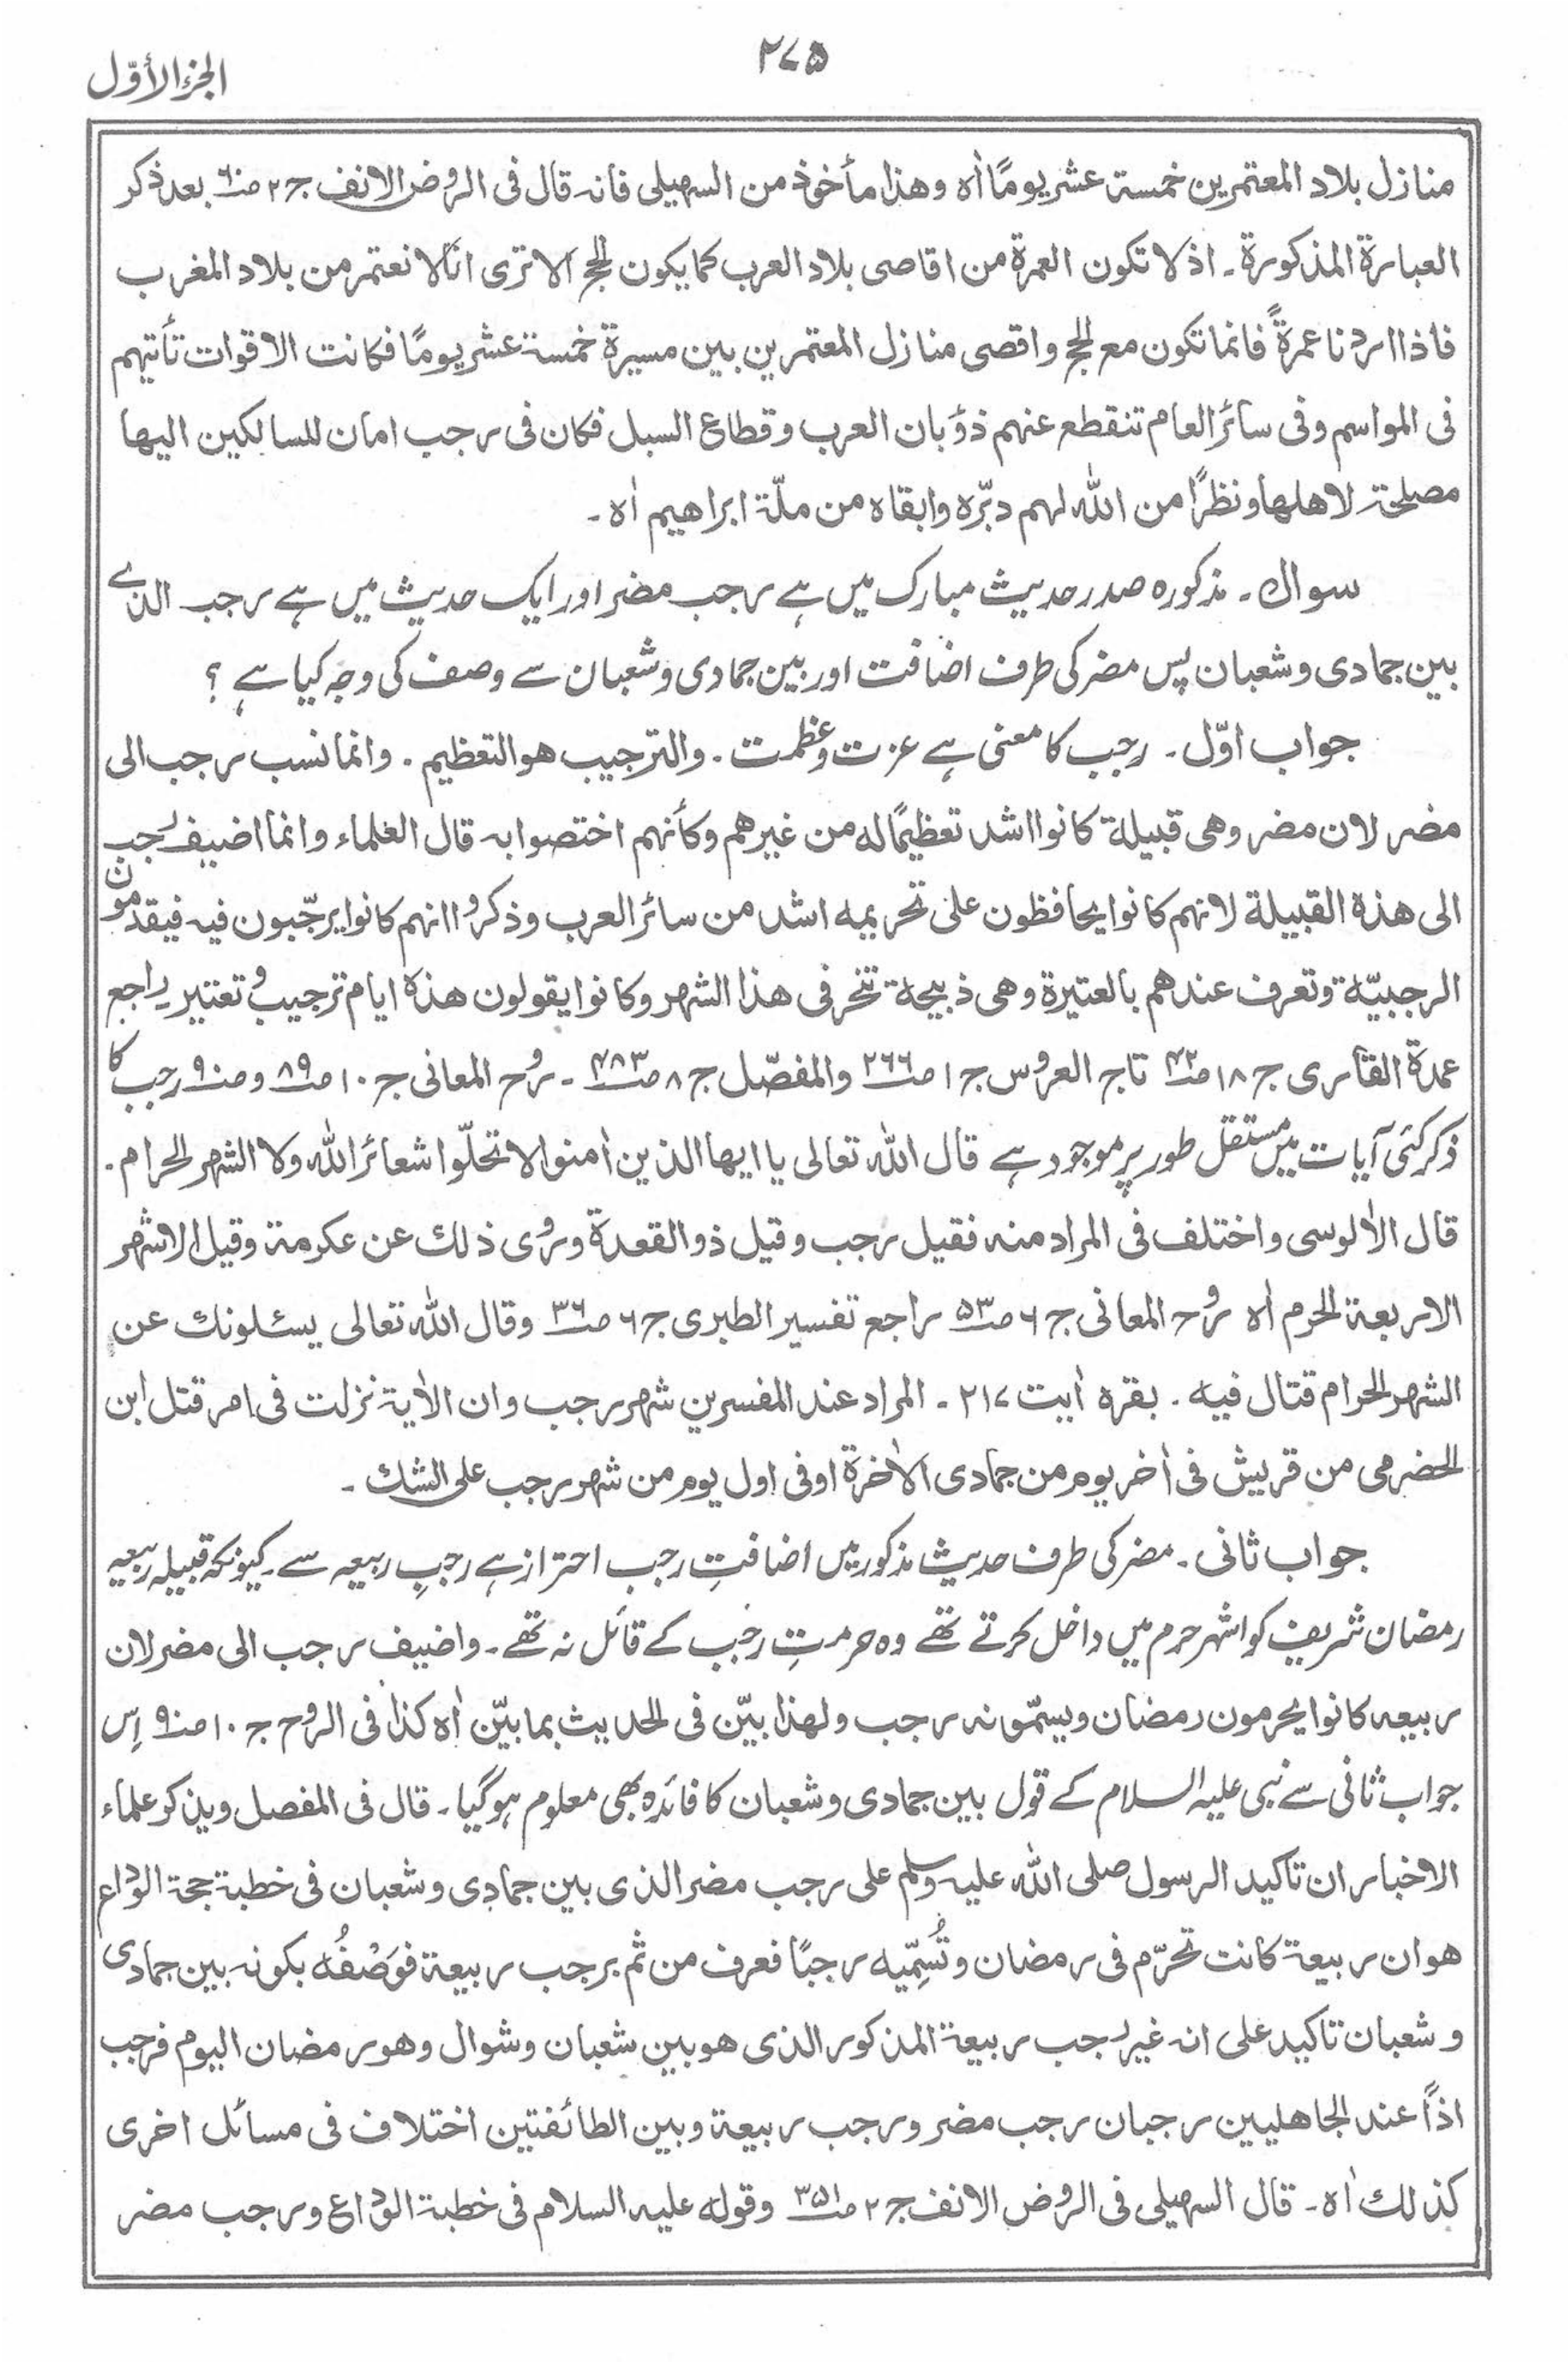 ۲۷۵
الجزء الأوّل
منازل بلاد المعتمرین خمسة عشر یومًا اٰہ وھذا مأخوذ من السہیلی فانہ قال فی الروض الانف ج۲ ص۶۰ بعد ذکر
العبارة المذکورة۔ اذ لا تکون العمرة من اقاصی بلاد العرب کما یکون الحج الا تری انّا لا نعتمر من بلاد المغرب
فاذا اردنا عمرةً فانما تکون مع الحج واقصی منازل المعتمرین بین مسیرة خمسة عشر یومًا فکانت الاقوات تأتیہم
فی المواسم وفی سائر العام تنقطع عنہم ذؤبان العرب وقطاع السبل فکان فی رجب امان للسالکین الیھا
مصلحة لاھلھا ونظرًا من اللہ لہم دبّرہ وابقاہ من ملّة ابراھیم اٰہ۔
سوال۔ مذکورہ صدر حدیث مبارک میں ہے رجب مضر اور ایک حدیث میں ہے رجب الذے
بین جمادی وشعبان پس مضر کی طرف اضافت اور بین جمادی وشعبان سے وصف کی وجہ کیا ہے ؟
جواب اوّل۔ رجب کا معنی ہے عزت وعظمت۔ والترجیب ھو التعظیم۔ وانما نسب رجب الی
مضر لان مضر وھی قبیلة کانوا اشد تعظیمًا لہ من غیرھم وکأنہم اختصوا بہ قال العلماء وانما اضیف رجب
الی ھذہ القبیلة لانہم کانوا یحافظون علی تحریمہ اشد من سائر العرب وذکروا انہم کانوا یرجّبون فیہ فیقدمون
الرجبیّة وتعرف عندھم بالعتیرة وھی ذبیحة تنحر فی ھذا الشہر وکانوا یقولون ھذہ ایام ترجیب وتعتیر راجع
عمدة القاری ج۱۸ ص۴۲ تاج العروس ج۱ ص۲۶۶ والمفصّل ج۸ ص۴۸۳ ۔ روح المعانی ج۱۰ ص۸۹ وص۹۰ رجب کا
ذکر کئی آیات میں مستقل طور پر موجود ہے قال اللہ تعالی یا ایھا الذین اٰمنوا لا تحلّوا شعائر اللہ ولا الشہر الحرام۔
قال الاٰلوسی واختلف فی المراد منہ فقیل رجب وقیل ذو القعدة وروی ذلک عن عکرمة وقیل الاشہر
الاربعة الحرم اٰہ روح المعانی ج۶ ص۵۳ راجع تفسیر الطبری ج۶ ص۳۶ وقال اللہ تعالی یسئلونک عن
الشہر الحرام قتال فیہ۔ بقرہ اٰیت ۲۱۷ ۔ المراد عند المفسرین شہر رجب وان الاٰیة نزلت فی امر قتل ابن
الحضرمی من قریش فی اٰخر یوم من جمادی الاٰخرة او فی اول یوم من شہر رجب علی الشک۔
جواب ثانی۔ مضر کی طرف حدیث مذکور میں اضافتِ رجب احتراز ہے رجبِ ربیعہ سے۔ کیونکہ قبیلہ ربیعہ
رمضان شریف کو اشہر حرم میں داخل کرتے تھے وہ حرمتِ رجب کے قائل نہ تھے۔ واضیف رجب الی مضر لان
ربیعہ کانوا یحرمون رمضان ویسمّونہ رجب ولھذا بیّن فی الحدیث بما بیّن اٰہ کذا فی الروح ج۱۰ ص۹۰ اِس
جواب ثانی سے نبی علیہ السلام کے قول بین جمادی وشعبان کا فائدہ بھی معلوم ہوگیا۔ قال فی المفصل ویذکر علماء
الاخبار ان تاکید الرسول صلی اللہ علیہ وسلم علی رجب مضر الذی بین جمادی وشعبان فی خطبة حجة الوداع
ھو ان ربیعة کانت تحرّم فی رمضان وتُسَمِّیہ رجبًا فعرف من ثم برجب ربیعة فوَصْفُہ بکونہ بین جمادی
وشعبان تاکید علی انہ غیر رجب ربیعة المذکور الذی ھو بین شعبان وشوال وھو رمضان الیوم فرجب
اذاً عند الجاھلیین رجبان رجب مضر ورجب ربیعة وبین الطائفتین اختلاف فی مسائل اخری
کذلک اٰہ۔ قال السہیلی فی الروض الانف ج۲ ص۳۵۱ وقولہ علیہ السلام فی خطبة الوداع ورجب مضر